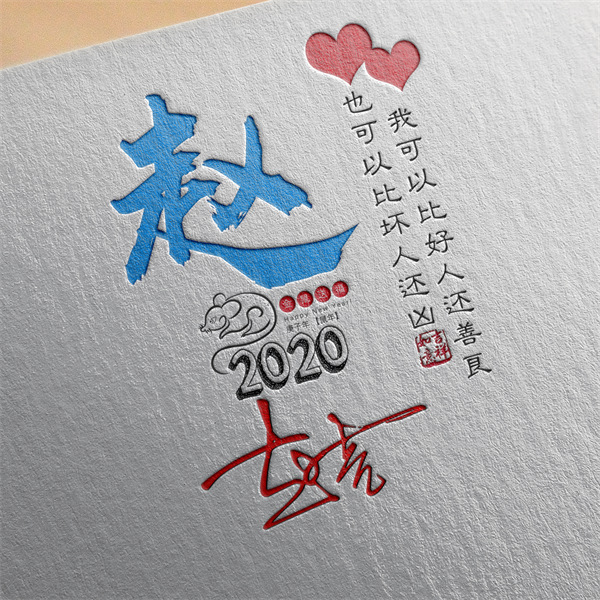 赵
我可以比好人还善良
也可以比坏人还凶
吉祥
如意
金鼠送福
Happy New year!
庚子年【鼠年】
2020